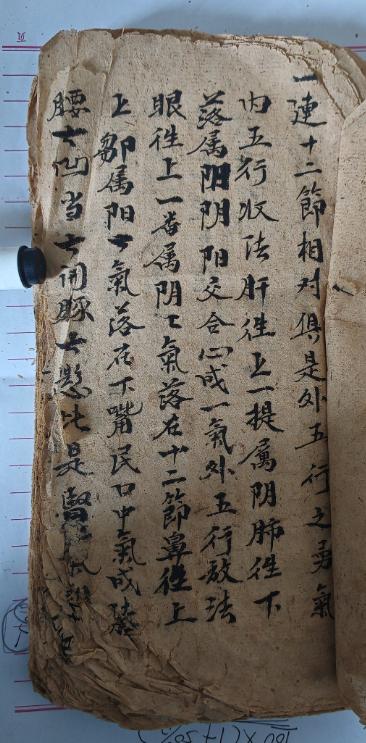 一連十二節相对俱是外五行之勇氣
内五行收法肝徃上一提属阴肺徃下
落属阳阴阳交合心成一氣外五行放法
眼徃上一番属阴七氣落在十二節鼻徃上
上邹属阳七氣落在下嘴民口中氣成
腰七凹当七闭豚七懸此是